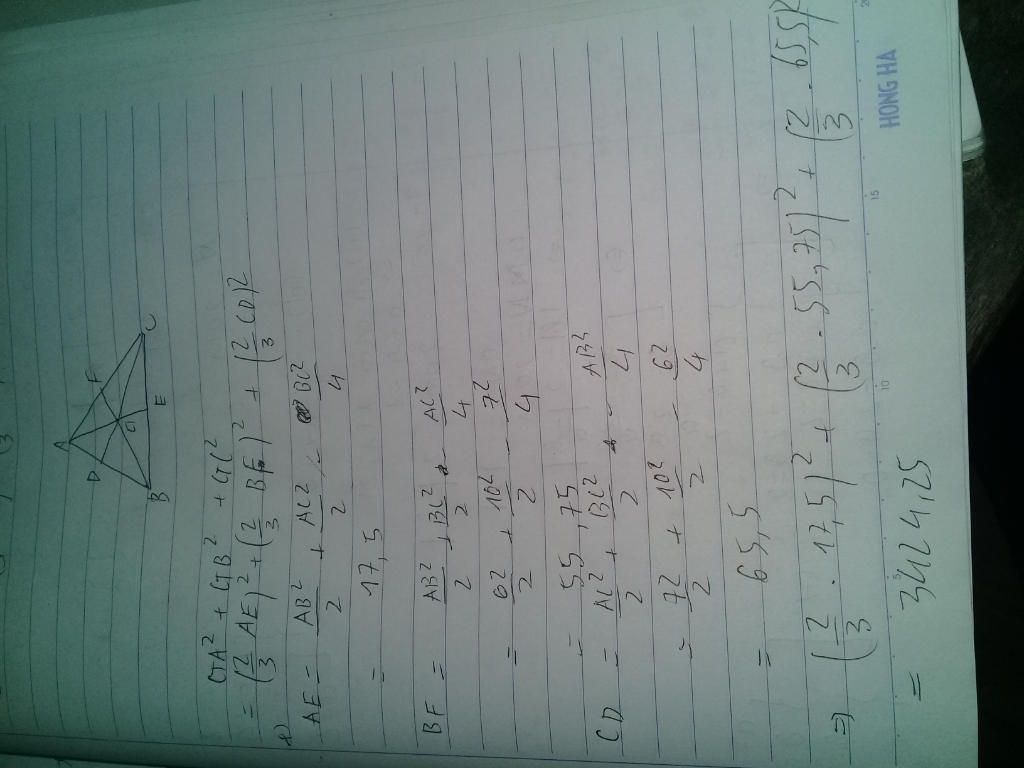 A
D
F
G
B
E
C
GA² + GB² + GC²
= (2/3 AE)² + (2/3 BF)² + (2/3 CD)²
AE = AB²/2 + AC²/2 - BC²/4
= 17,5
BF = AB²/2 + BC²/2 - AC²/4
= 6²/2 + 10²/2 - 7²/4
= 55,75
CD = AC²/2 + BC²/2 - AB²/4
= 7²/2 + 10²/2 - 6²/4
= 65,5
⇒ (2/3 . 17,5)² + (2/3 . 55,75)² + (2/3 . 65,5)²
= 3424,25
5 10 15 20
HONG HA